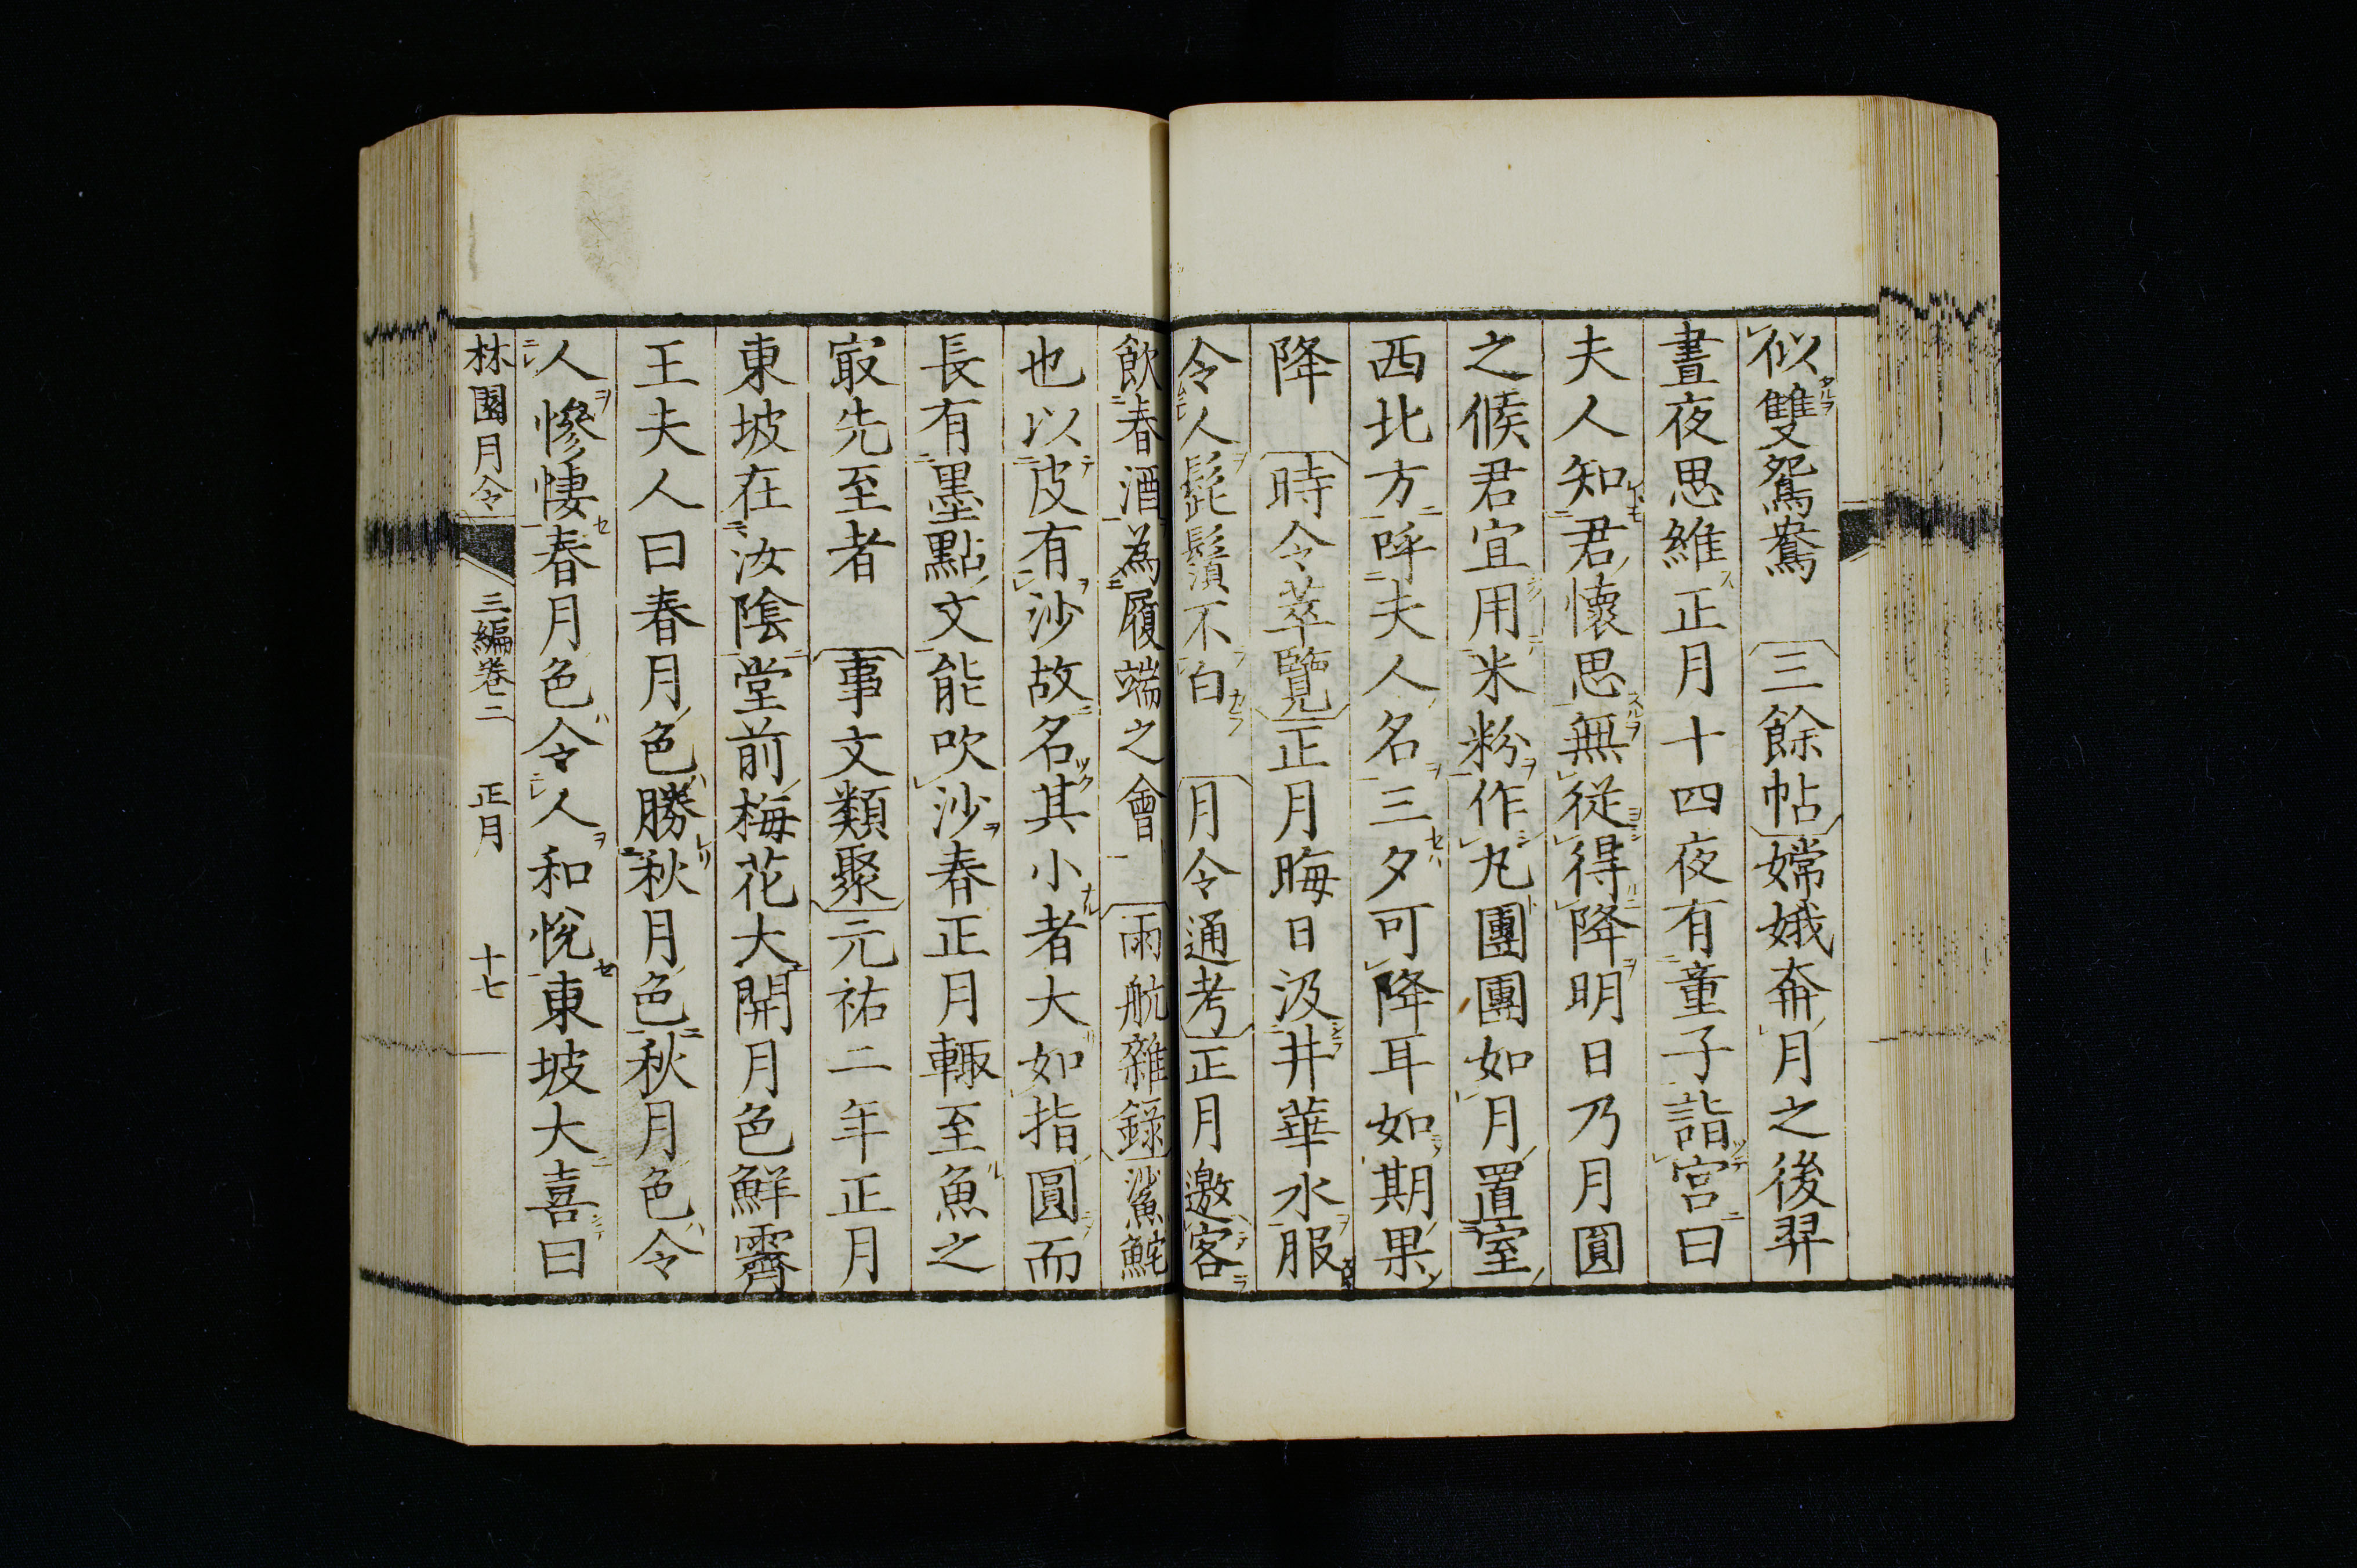 似雙鴛鴦 三餘帖嫦娥奔月之後羿
晝夜思維正月十四夜有童子詣宮曰
夫人知君懷思無從得降明日乃月圓
之候君宜用米粉作丸團團如月置室
西北方呼夫人名三夕可降耳如期果
降 時令萃覽正月晦日汲井華水服
令人髭鬚不白 月令通考正月邀客
飲春酒為履端之會 雨航雜錄鯊鮀
也以皮有沙故名其小者大如指圓而
長有墨點文能吹沙春正月輙至魚之
㝡先至者 事文類聚元祐二年正月
東坡在汝陰堂前梅花大開月色鮮霽
王夫人曰春月色勝秋月色秋月色令
人慘悽春月色令人和悅東坡大喜曰
林園月令 三編卷二 正月 十七